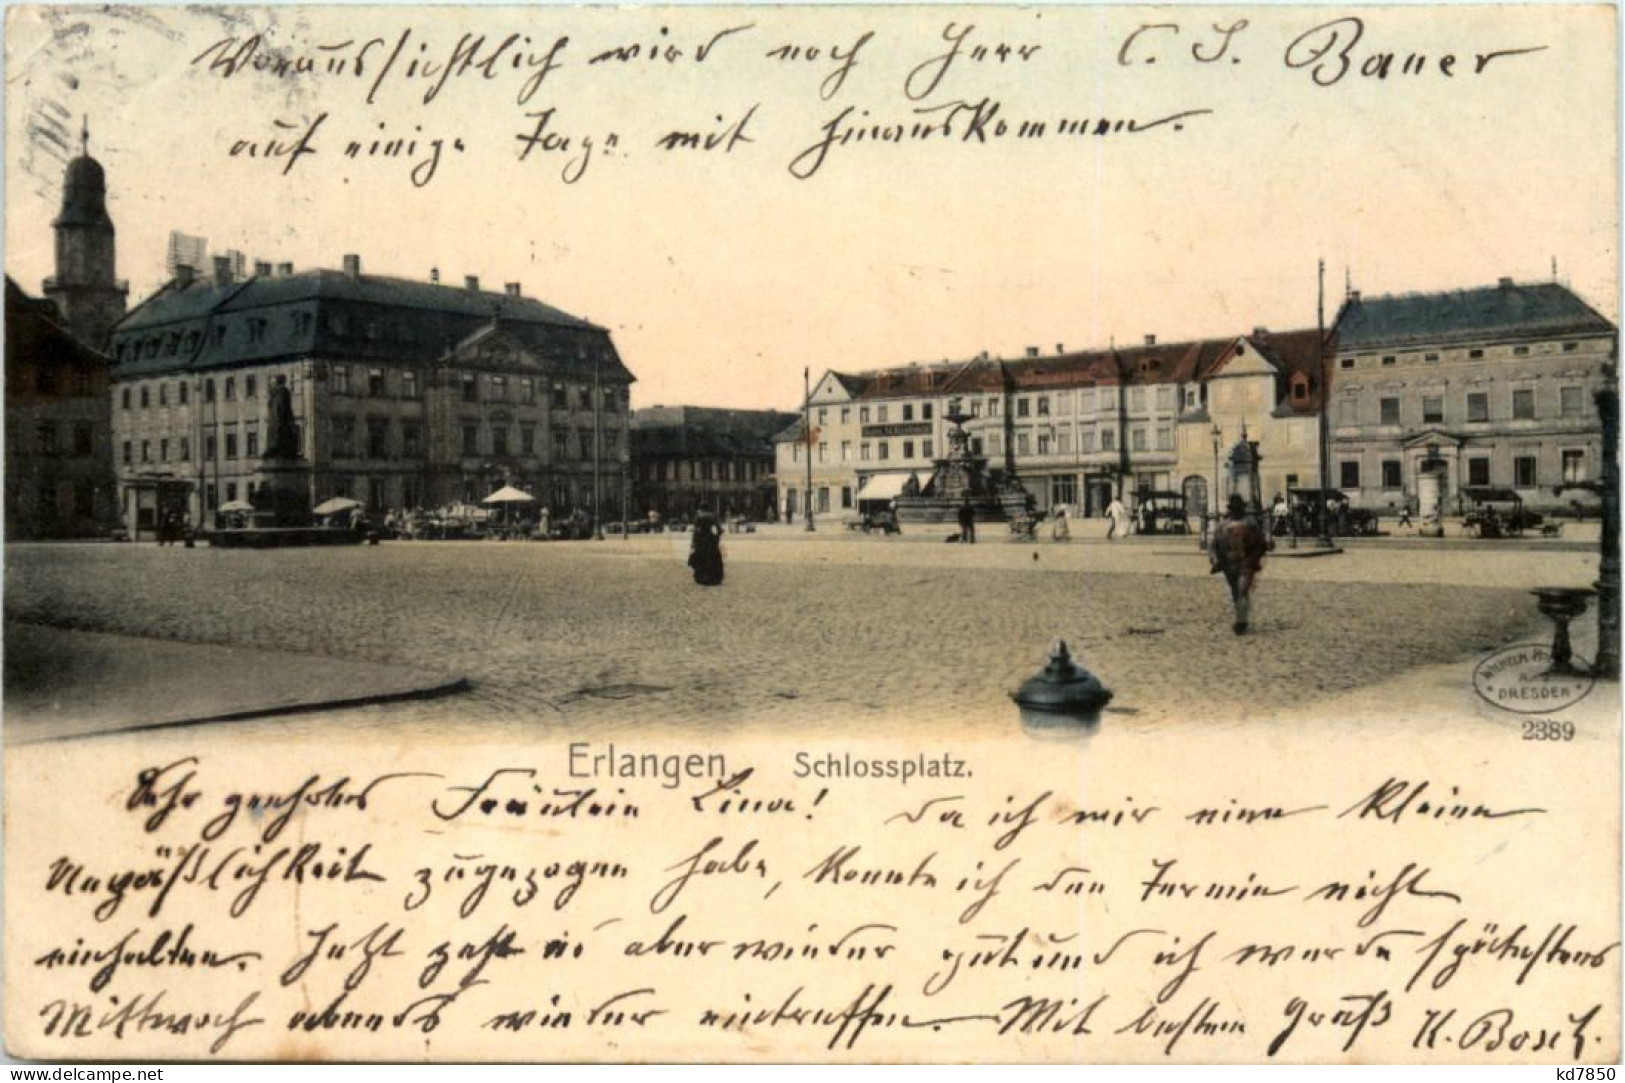 Voraussichtlich wird noch Herr C. S. Bauer
auf einige Tage mit hinauskommen.
DRESDEN
2389
Erlangen. Schlossplatz.
Sehr geehrtes Fräulein Lina! Da ich mir eine kleine
Unpäßlichkeit zugezogen habe, konnte ich den Termin nicht
einhalten. Jetzt geht es aber wieder gut und ich werde spätestens
Mittwoch abends wieder eintreffen. Mit bestem Gruß K. Bosch.
kd7850